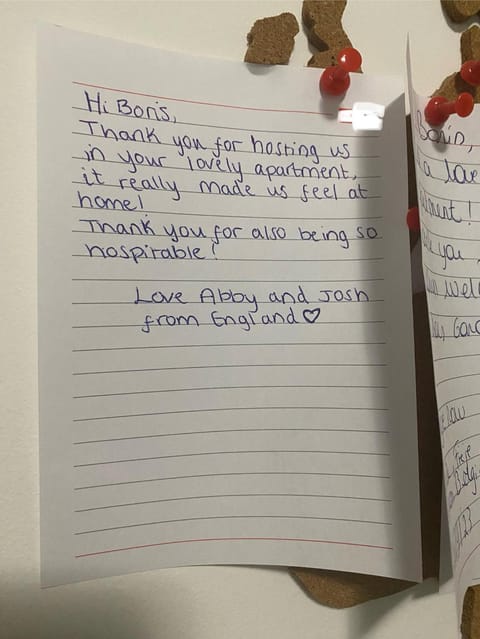 Hi Boris,
Thank you for hosting us
in your lovely apartment,
it really made us feel at
home!
Thank you for also being so
hospitable!
Love Abby and Josh
from England♡
a love
you
23